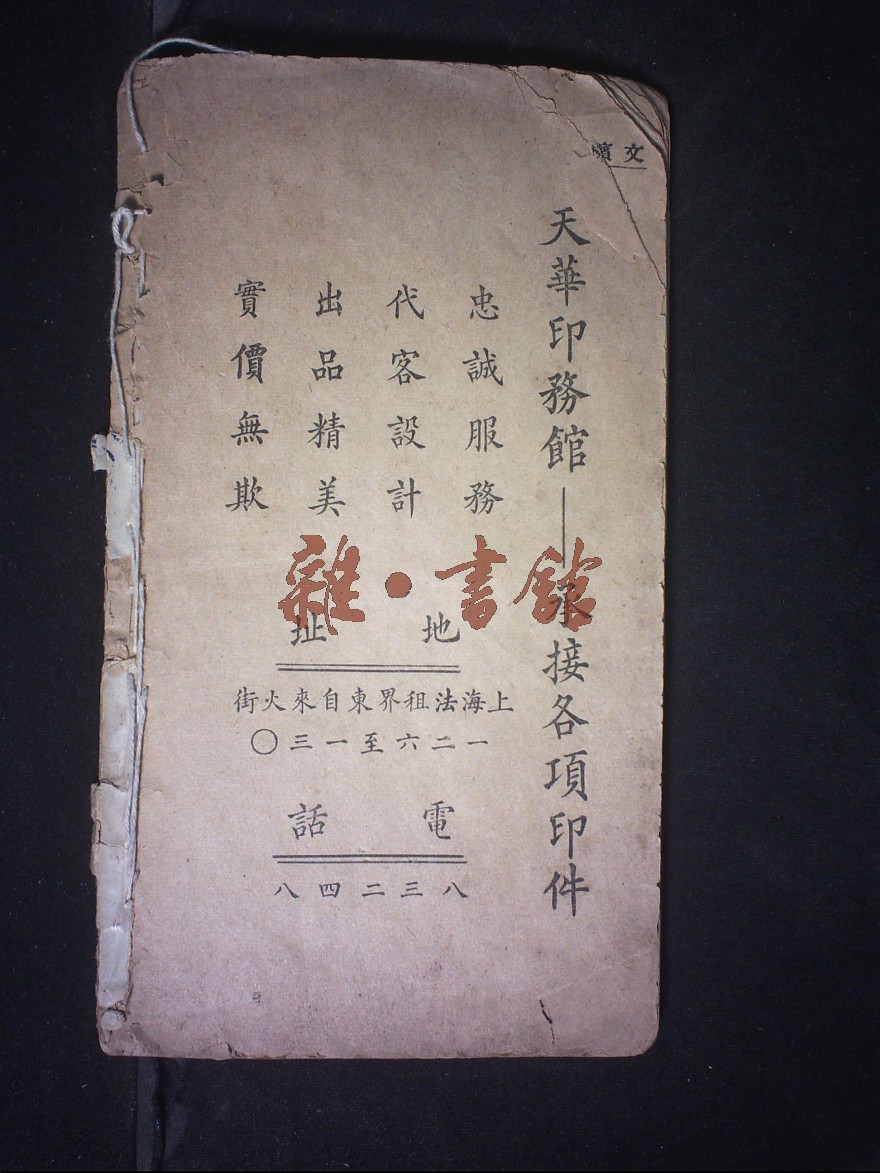 文
天華印務館——承接各項印件
忠誠服務
代客設計
出品精美
實價無欺
地址
上海法租界東自來火街
一二六至一三〇
電話
八三二四八
雜·書館